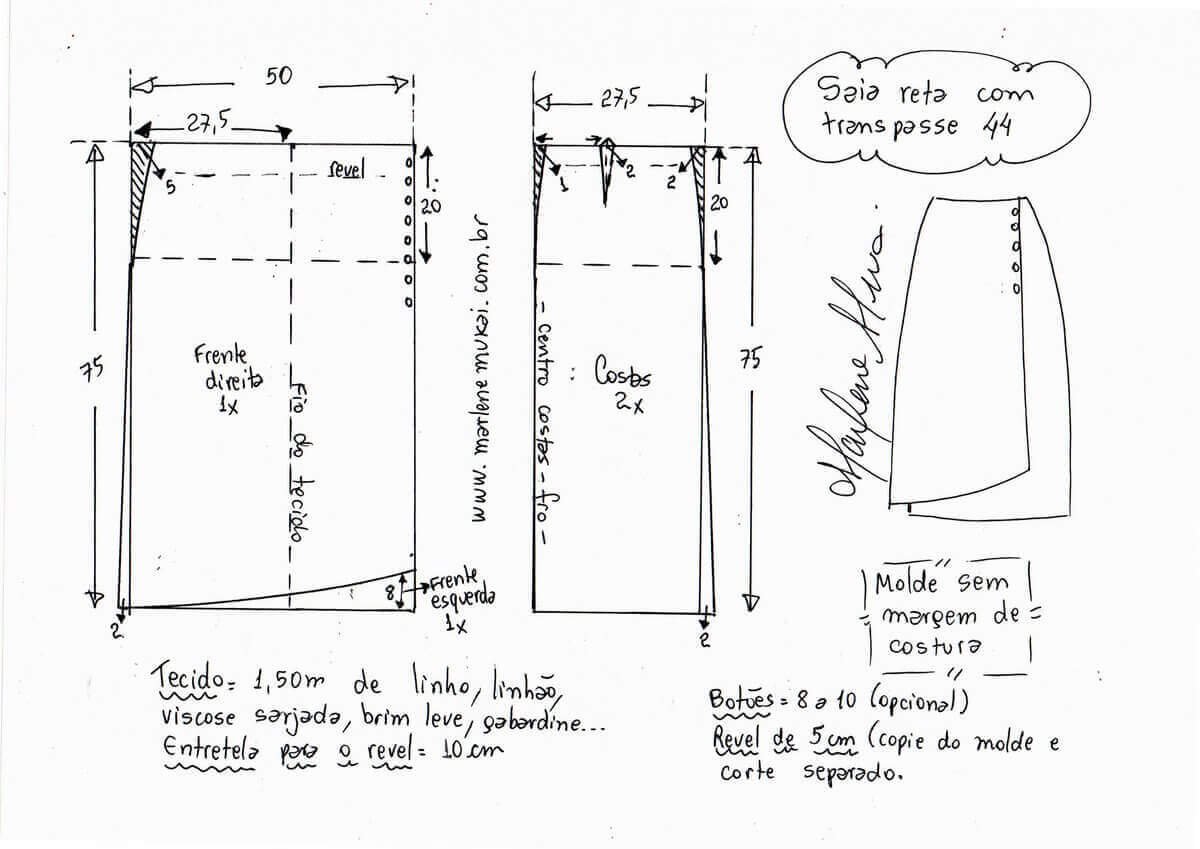 Saia reta com
transpasse 44
50
27,5
5
revel
20
75
Frente
direita
1x
Fio do tecido
8
Frente
esquerda
1x
2
www.marlenemukai.com.br
27,5
1
2
2
20
75
- centro costas - fio -
Costas
2x
2
Molde sem
margem de
costura
Tecido = 1,50m de linho, linhão,
viscose sarjada, brim leve, gabardine...
Entretela para o revel = 10 cm
Botões = 8 a 10 (opcional)
Revel de 5 cm (copie do molde e
corte separado.